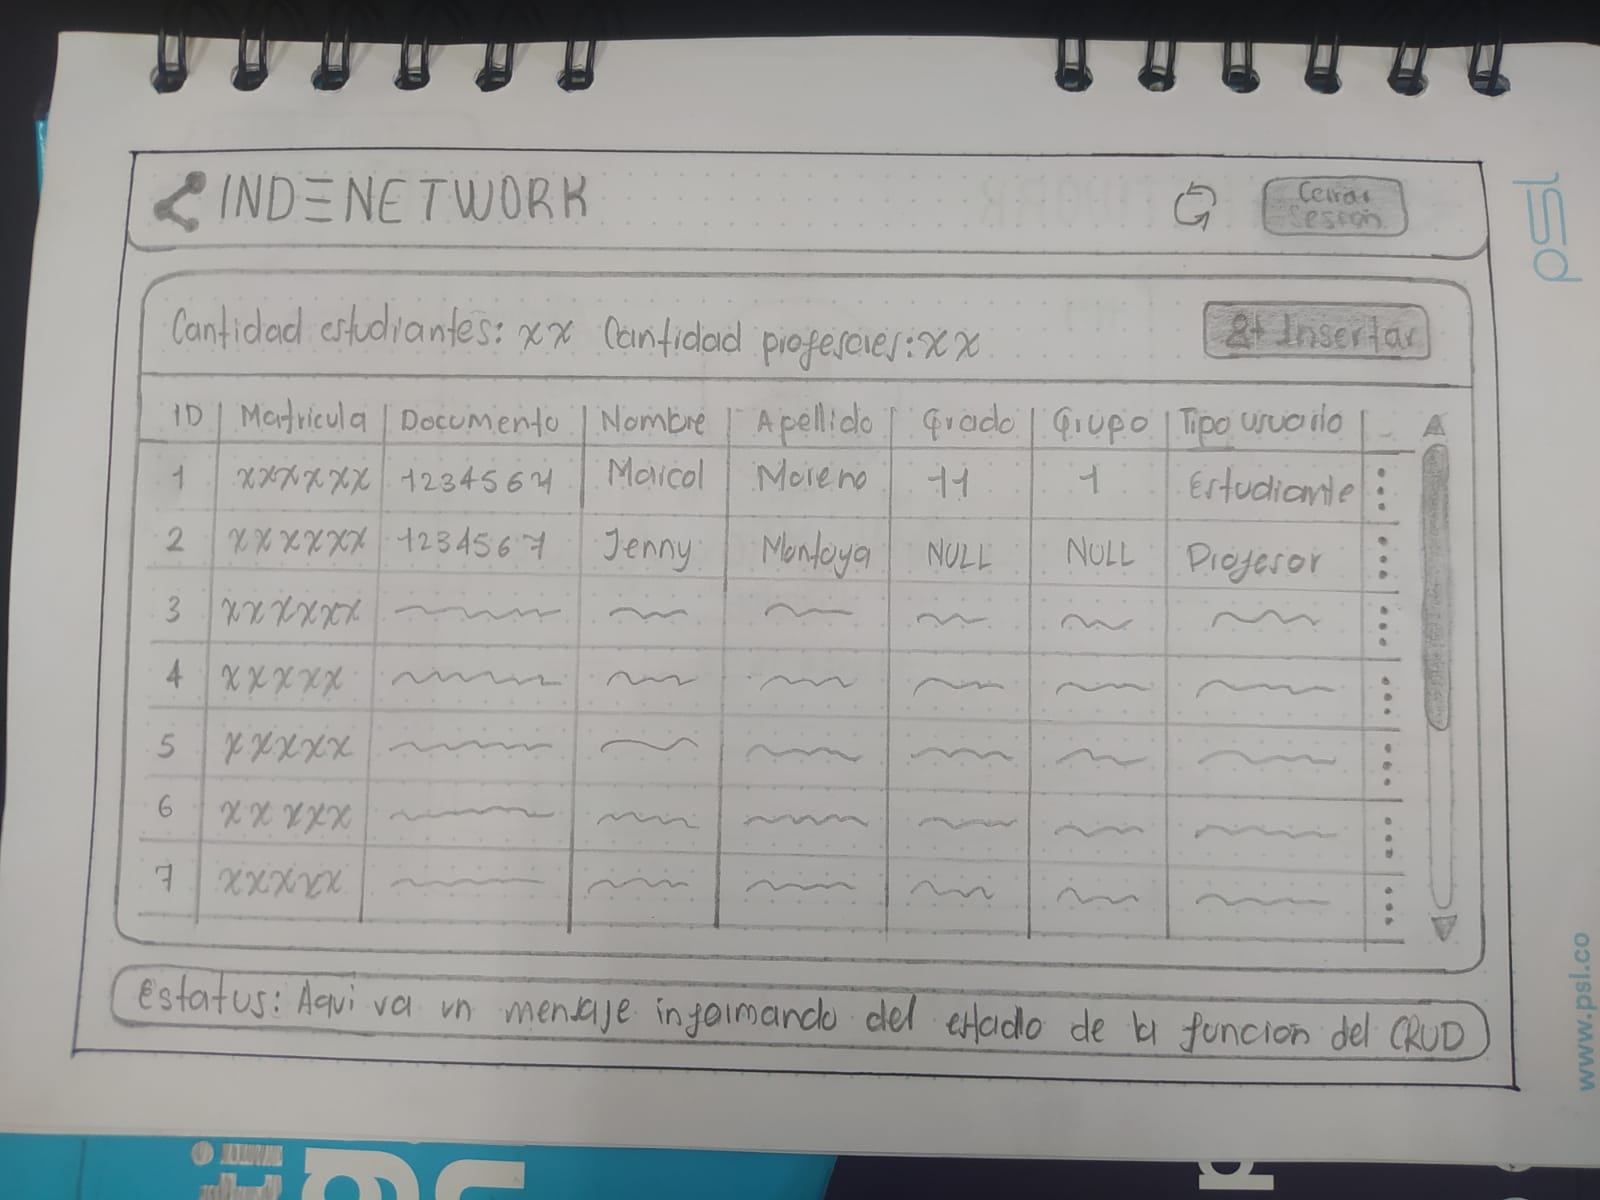 INDENETWORK
Cerrar
Sesión
Cantidad estudiantes: xx Cantidad profesores: xx
Insertar
ID Matricula Documento Nombre Apellido Grado Grupo Tipo usuario
1 xxxxxx 12345671 Maicol Moreno 11 1 Estudiante
2 xxxxxx 1234567 Jenny Montoya NULL NULL Profesor
3 xxxxxx
4 xxxxx
5 xxxxx
6 xxxxx
7 xxxxx
Estatus: Aqui va un mensaje informando del estado de la funcion del CRUD
psl
www.psl.co